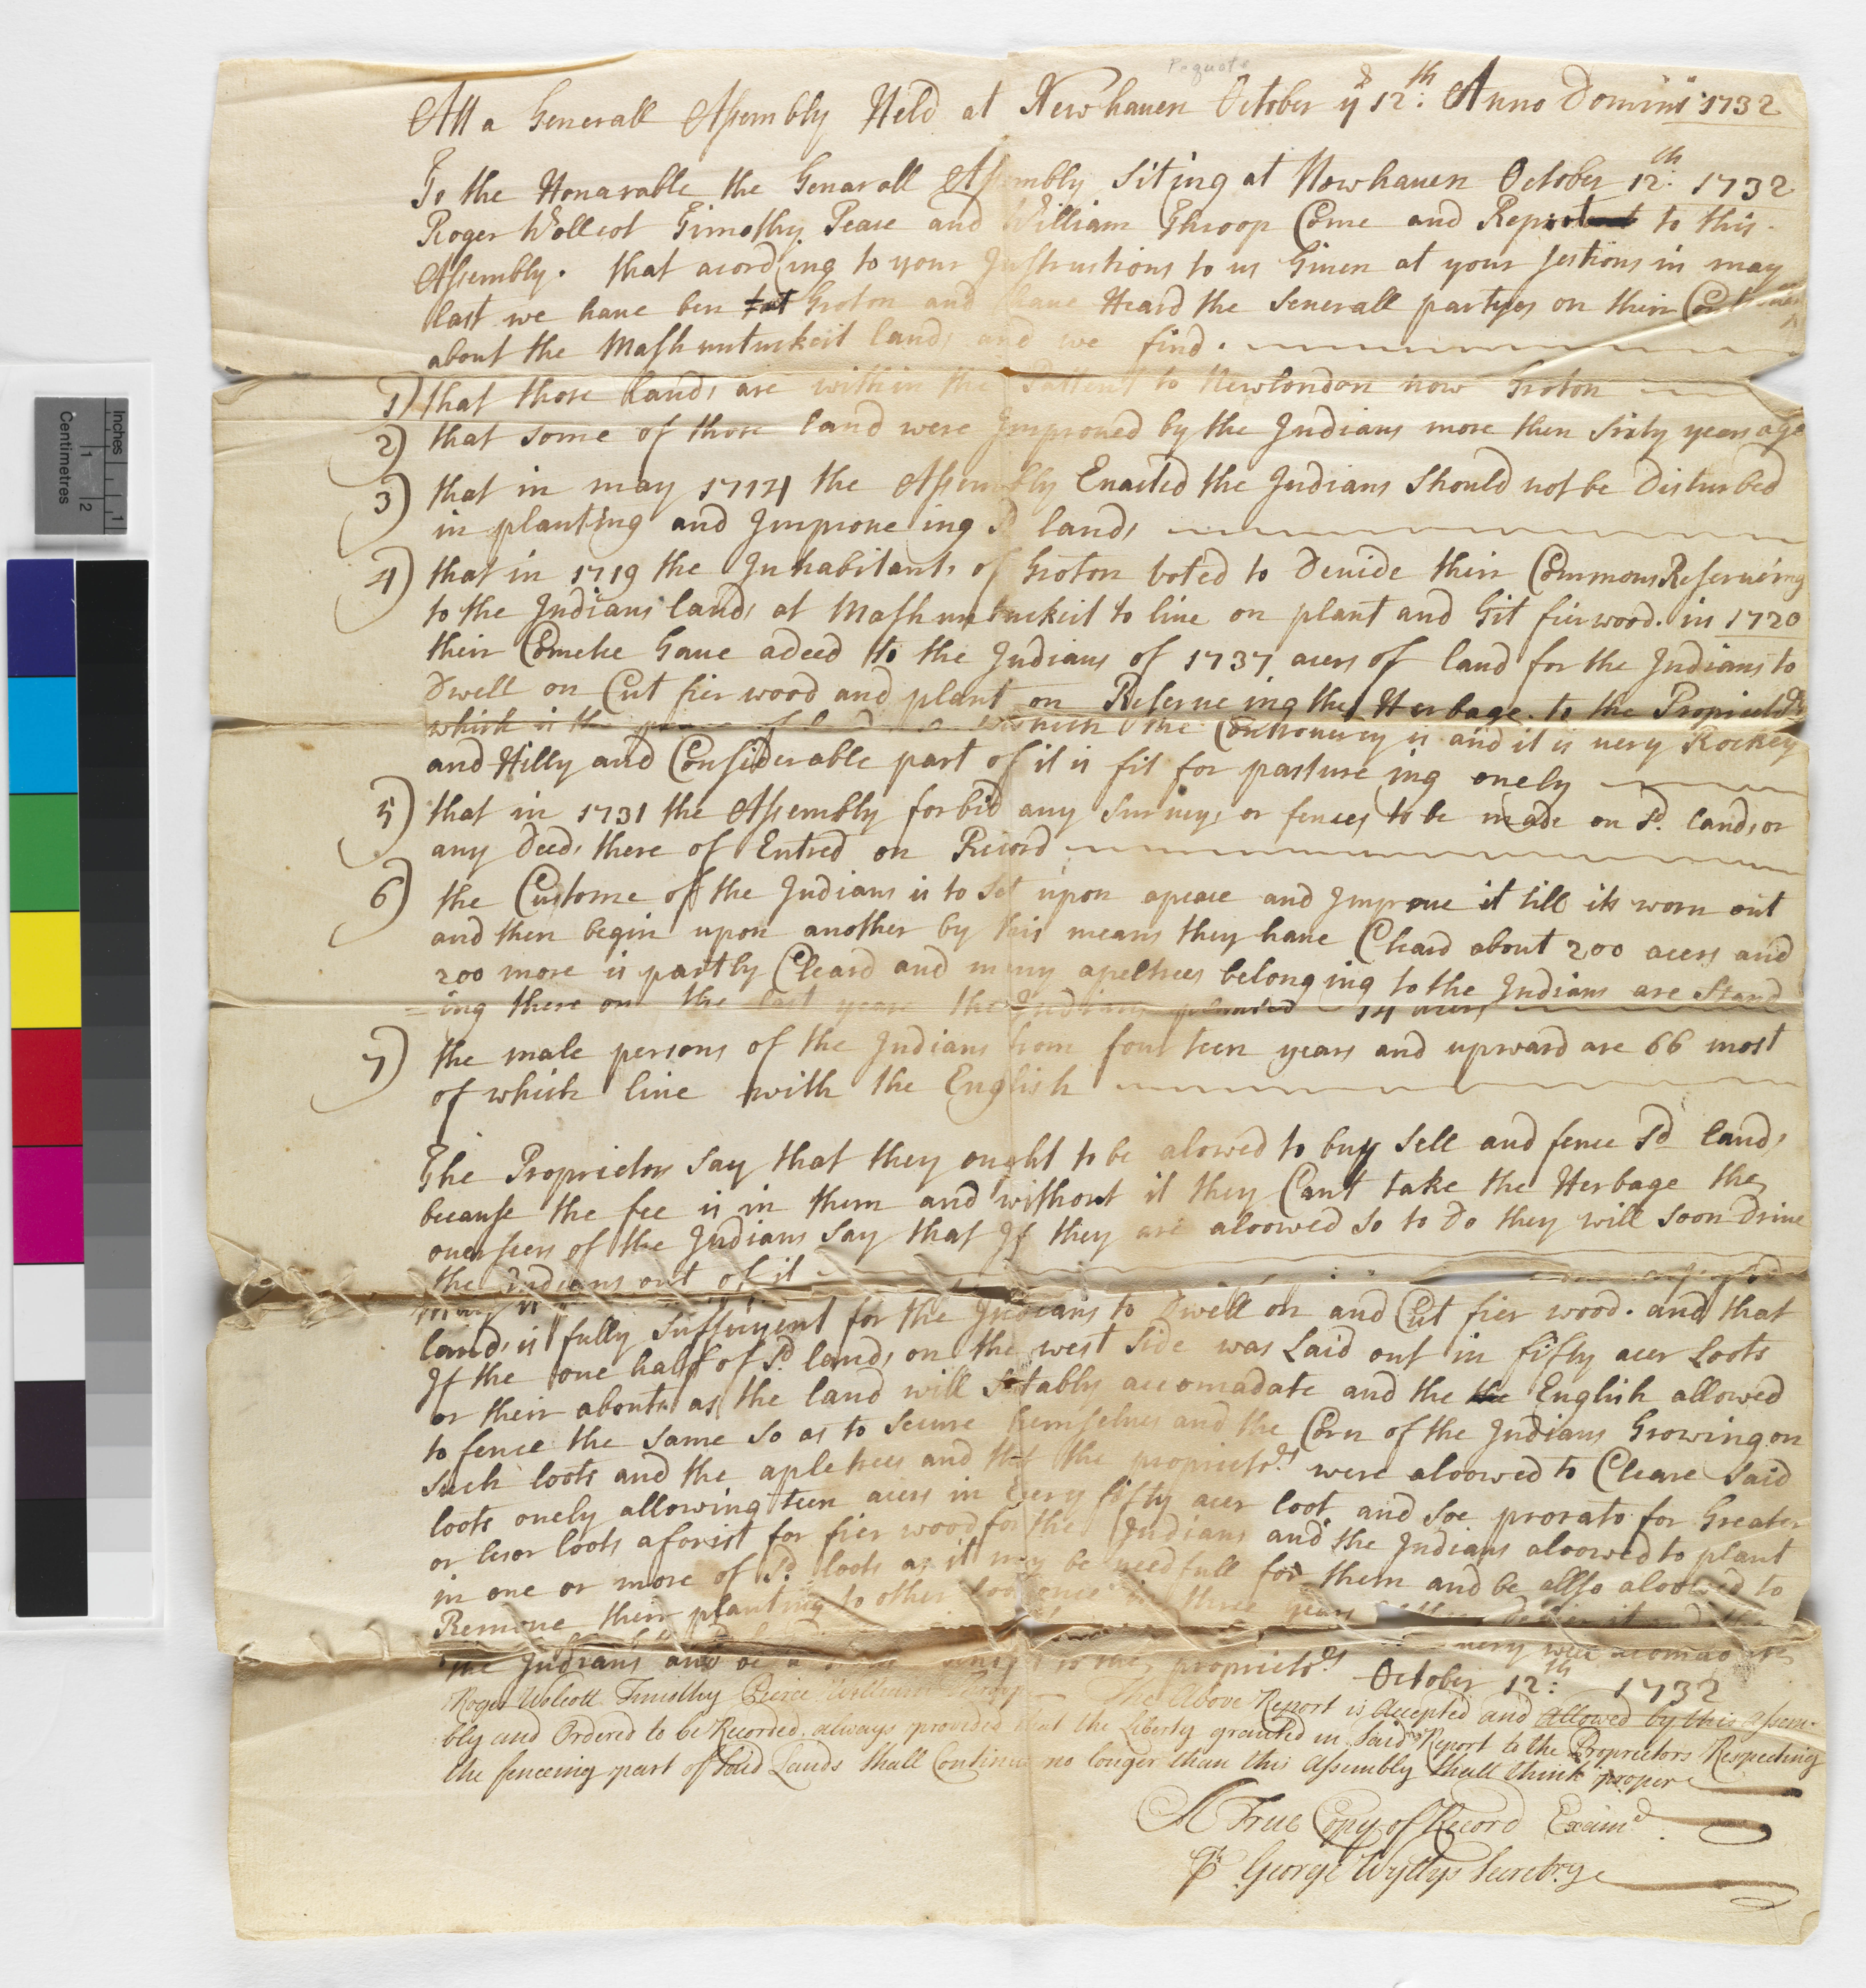 Pequots
Att a Generall Assembly Held at Newhauen October ye 12th: Anno Domini 1732
To the Honarable the Genarall Assembly Siting at Newhauen October 12th: 1732
Roger Wollcot Timothy Pease and William Throop Come and Report to this
Assembly. that acording to your Instructions to us Giuen at your sestions in may
last we haue ben at Groton and haue Heard the Seuerall partyes on their
about the Mashuntuckeit lands and we find.
1) that those lands are within the Pattent to Newlondon now Groton
2) that some of those land were Improued by the Indians more then sixty years ago
3) that in may 1714 the Assembly Enacted the Indians Should not be Disturbed
in planting and Improue ing sd lands
4) that in 1719 the Inhabitants of Groton voted to Deuide their Commons Reserueing
to the Indians lands at Mashuntuckeit to liue on plant and Git fier wood. in 1720
their Comete Gaue a deed to the Indians of 1737 acers of land for the Indians to
Dwell on Cut fier wood and plant on Reserue ing the Herbage to the Proprietrs
which is the of land in which the Controuercy is and it is uery Rockey
and Hilly and Considerable part of it is fit for pasture ing onely
5) that in 1731 the Assembly forbid any Surueys or fences to be made on sd. lands or
any Deeds there of Entred on Record
6) the Custome of the Indians is to Set upon apeace and Improue it till its worn out
and then begin upon another by this means they haue Cleard about 200 acers and
200 more is partly Cleard and many apeltrees belonging to the Indians are Stand
=ing there on the last yeare the Indians planted 14 acers
7) the male persons of the Indians from fourteen years and upward are 66 most
of which liue with the English
The Proprietors say that they ought to be alowed to buy Sell and fence sd lands
because the fee is in them and without it they Cant take the Herbage the
ouerseers of the Indians Say that If they are aloowed so to Do they will soon Driue
the Indians out of it
lands is fully suffuciyent for the Indians to Dwell on and Cut fier wood. and that
If the one half of sd. lands on the west Side was Laid out in fifty acer Loots
or their abouts as the land will sutably accomadate and the the English allowed
to fence the same so as to secure themselues and the Corn of the Indians Growing on
such loots and the apletrees and that the proprietrs were aloowed to Cleare Said
loots onely allowing teen acers in Euery fifty acer loot and soe prorato for Greater
or leser loots aforist for fier wood for the Indians and the Indians aloowed to plant
in one or more of sd. loots as it may be needfull for them and be allso aloowed to
Remoue their planting to other loots once in three years
the Indians and be a to the proprietrs uery well accomadate
October 12th: 1732
Roger Wolcott Timothy Peirce William Throop The Above Report is Accepted and Allowed by this Assem-
bly and Ordered to be Recorded. always provided that the Liberty granted in Said Report to the Proprietors Respecting
the fenceing part of Said Lands Shall Continue no longer than this Assembly Shall think proper
A True Copy of Record Examd.
Pr George Wyllys Secretry
Inches
1
Centimetres
1
2